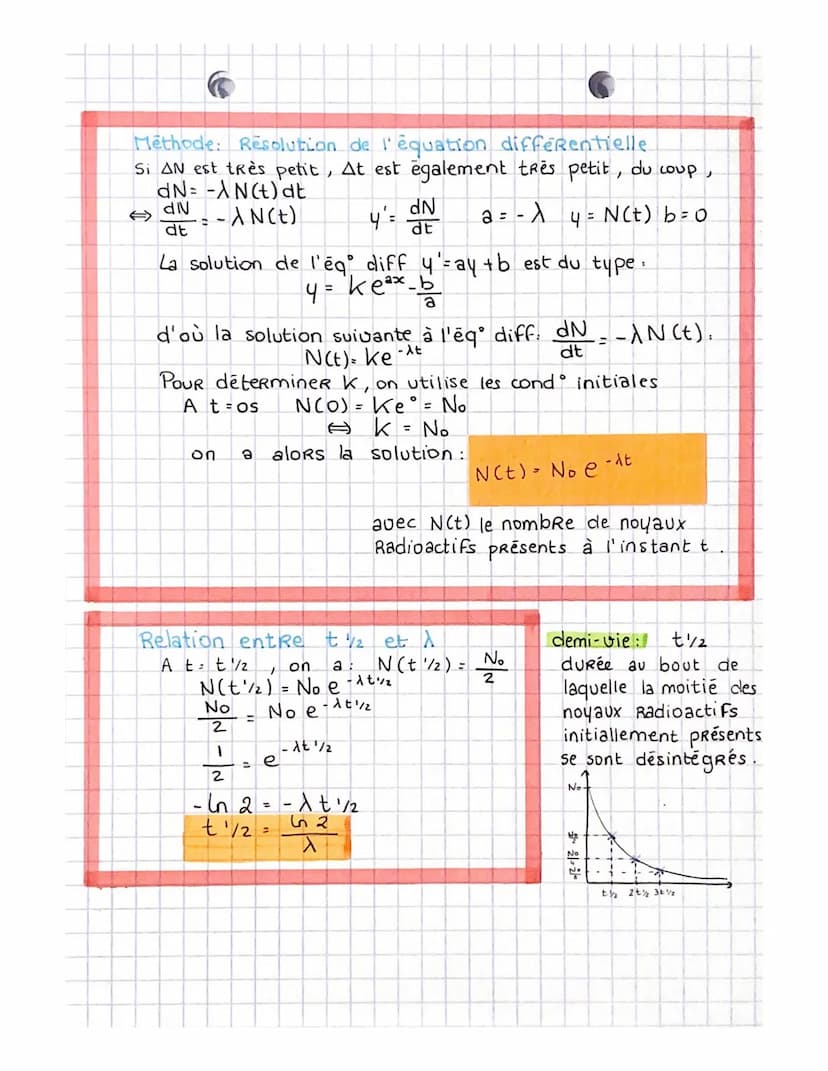 Méthode: Résolution de l'équation différentielle
Si ΔN est très petit, Δt est également très petit, du coup,
dN = -λN(t)dt
⇔ dN/dt = -λN(t) y' = dN/dt a = -λ y = N(t) b = 0
La solution de l'éq° diff y'=ay+b est du type:
y = Ke^ax - b/a
d'où la solution suivante à l'éq° diff: dN/dt = -λN(t).
N(t) = Ke^-λt
Pour déterminer K, on utilise les cond° initiales
A t=0s N(0) = Ke° = N₀
⇔ K = N₀
on a alors la solution:
N(t) = N₀ e^-λt
avec N(t) le nombre de noyaux
Radioactifs présents à l'instant t.
Relation entre t 1/2 et λ
A t = t 1/2, on a: N(t 1/2) = N₀/2
N(t 1/2) = N₀ e^-λt 1/2
N₀/2 = N₀ e^-λt 1/2
1/2 = e^-λt 1/2
-ln 2 = -λ t 1/2
t 1/2 = ln 2/λ
demi-vie: t 1/2
durée au bout de
laquelle la moitié des
noyaux Radioactifs
initiallement présents
se sont désintégrés.
N₀
N₀/2
N₀/4
N₀/8
t 1/2 2t 1/2 3t 1/2